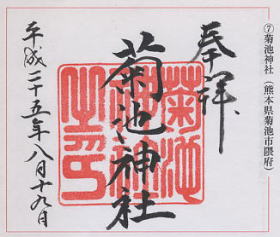 ⑦菊池神社(熊本県菊池市隈府)
奉拝
菊池神社
平成二十五年八月十九日
菊池神社之印